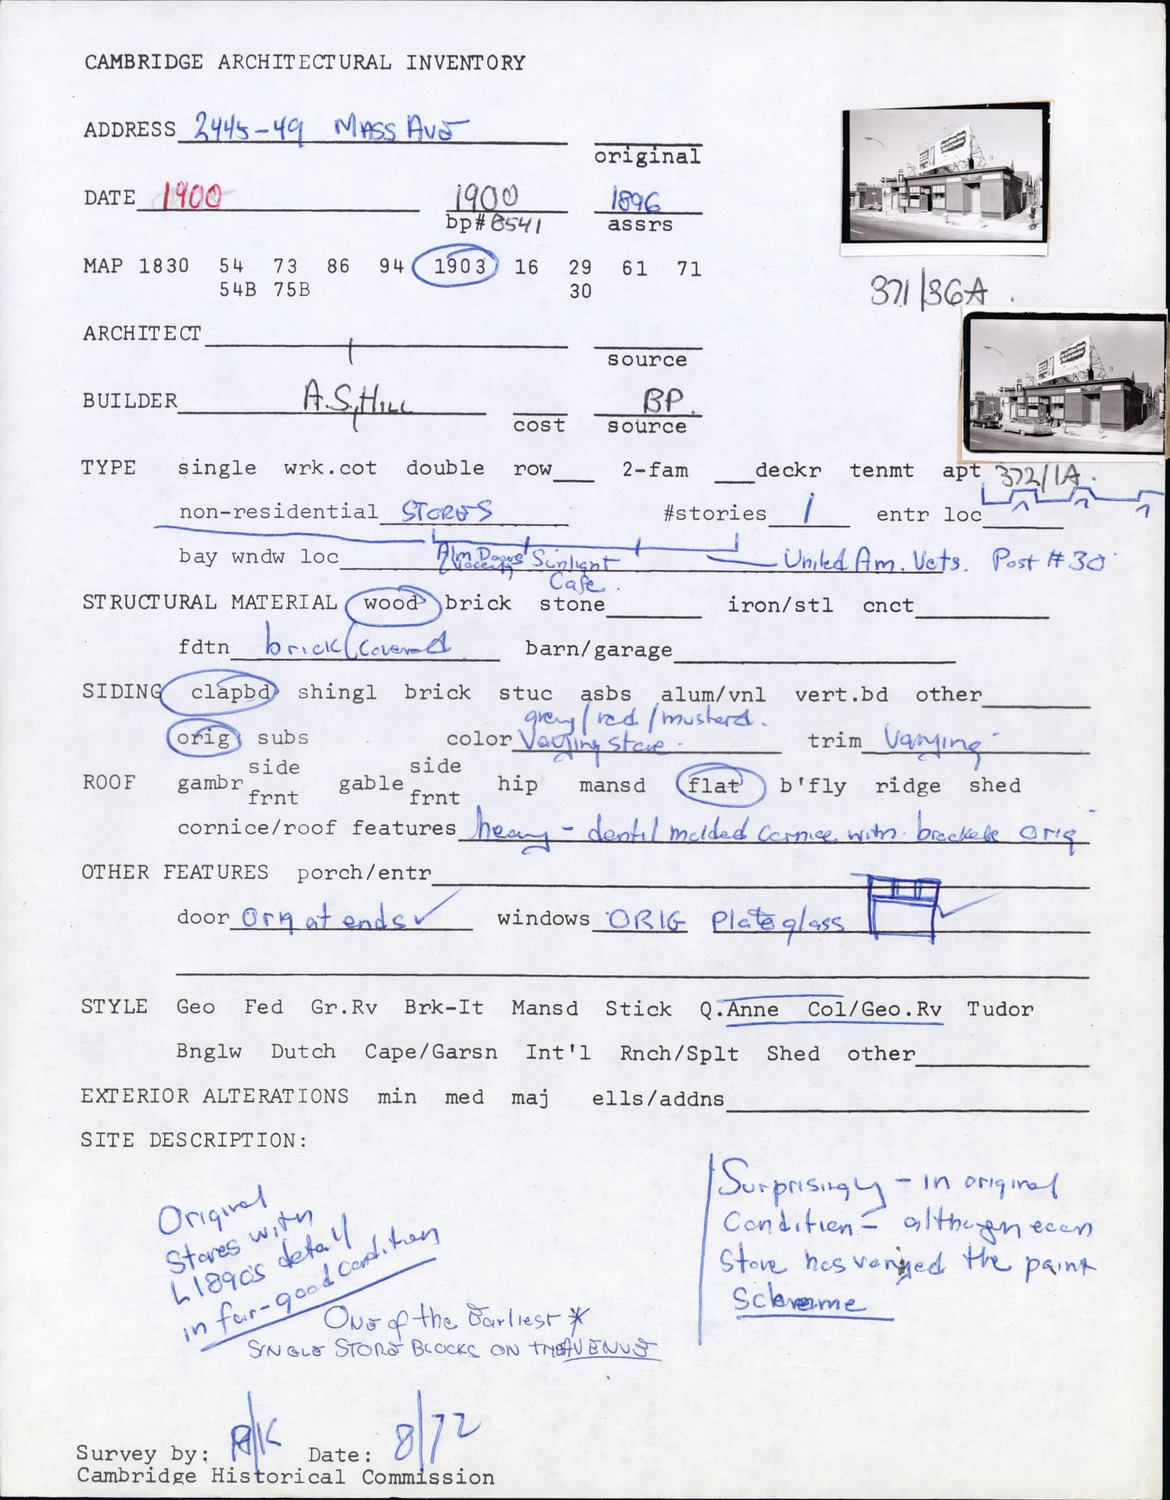 CAMBRIDGE ARCHITECTURAL INVENTORY
ADDRESS 2445-49 MASS AVE
original
DATE 1900 1900 1896
bp# 8541 assrs
MAP 1830 54 73 86 94 1903 16 29 61 71
54B 75B 30
371/36A
ARCHITECT
source
BUILDER A.S. HILL BP.
cost source
TYPE single wrk.cot double row 2-fam deckr tenmt apt 372/1A.
non-residential STORES #stories 1 entr loc
bay wndw loc Sunlight United Am. Vets. Post #30
Cafe.
STRUCTURAL MATERIAL wood brick stone iron/stl cnct
fdtn brick/covered barn/garage
SIDING clapbd shingl brick stuc asbs alum/vnl vert.bd other
grey/red/mustard.
orig subs color Varying store. trim Varying
ROOF gambr side frnt gable side frnt hip mansd flat b'fly ridge shed
cornice/roof features heavy - dentil molded cornice with brackets orig
OTHER FEATURES porch/entr
door Orig at ends windows ORIG Plate glass
STYLE Geo Fed Gr.Rv Brk-It Mansd Stick Q.Anne Col/Geo.Rv Tudor
Bnglw Dutch Cape/Garsn Int'l Rnch/Splt Shed other
EXTERIOR ALTERATIONS min med maj ells/addns
SITE DESCRIPTION:
Original
Stores with
L1890s detail
in fair-good condition
One of the Earliest *
SINGLE STORE BLOCKS ON THE AVENUE
Surprisingly - in original
Condition - although each
store has varied the paint
Scheme
Survey by: Date: 8/72
Cambridge Historical Commission